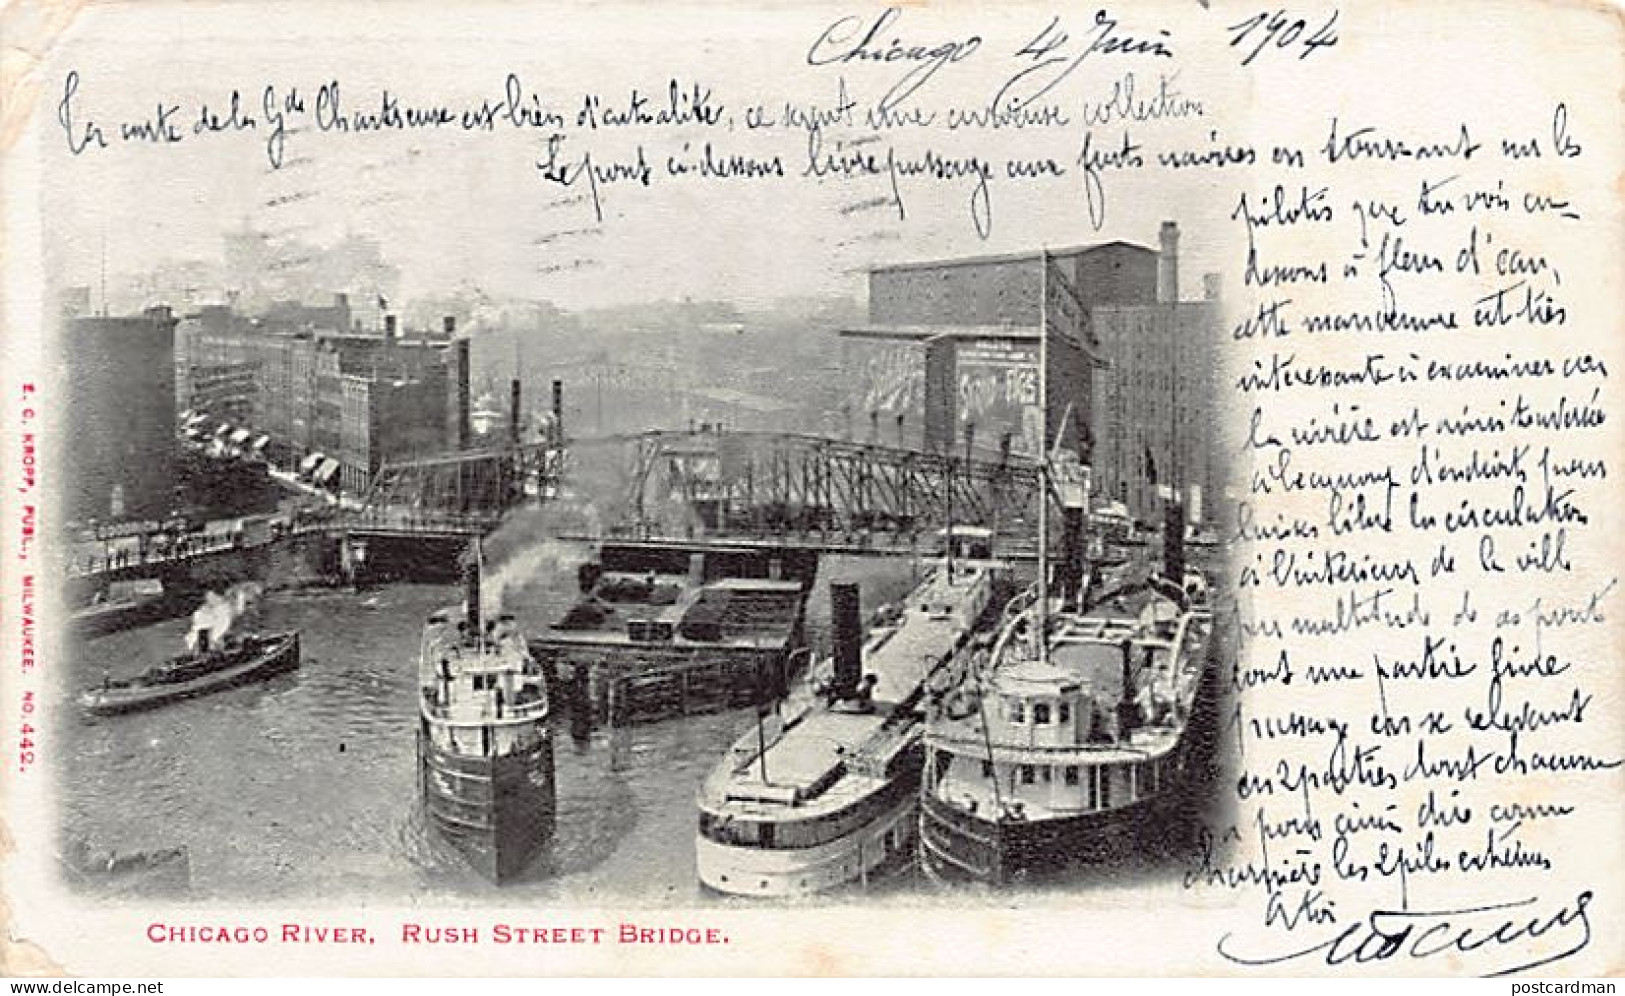 Chicago 4 Juin 1904
Ta carte de la Gde Chartreuse est bien d'actualité, ce sont une curieuse collection
Le pont ci-dessous livre passage aux forts navires en tournant sur les
pilotis que tu vois au-
dessous à fleur d'eau,
cette manoeuvre est très
interessante à examiner car
la rivière est ainsi traversée
à beaucoup d'endroits pour
laisser libre la circulation
à l'intérieur de la ville
par multitude de ces ponts
dont une partie livre
passage en se relevant
en 2 parties dont chacune
a pour ainsi dire comme
charnière les 2 piles extrêmes
A toi
E. C. KROPP, PUBL., MILWAUKEE. NO. 442.
CHICAGO RIVER, RUSH STREET BRIDGE.
the best website for collectors since 2000
postcardman